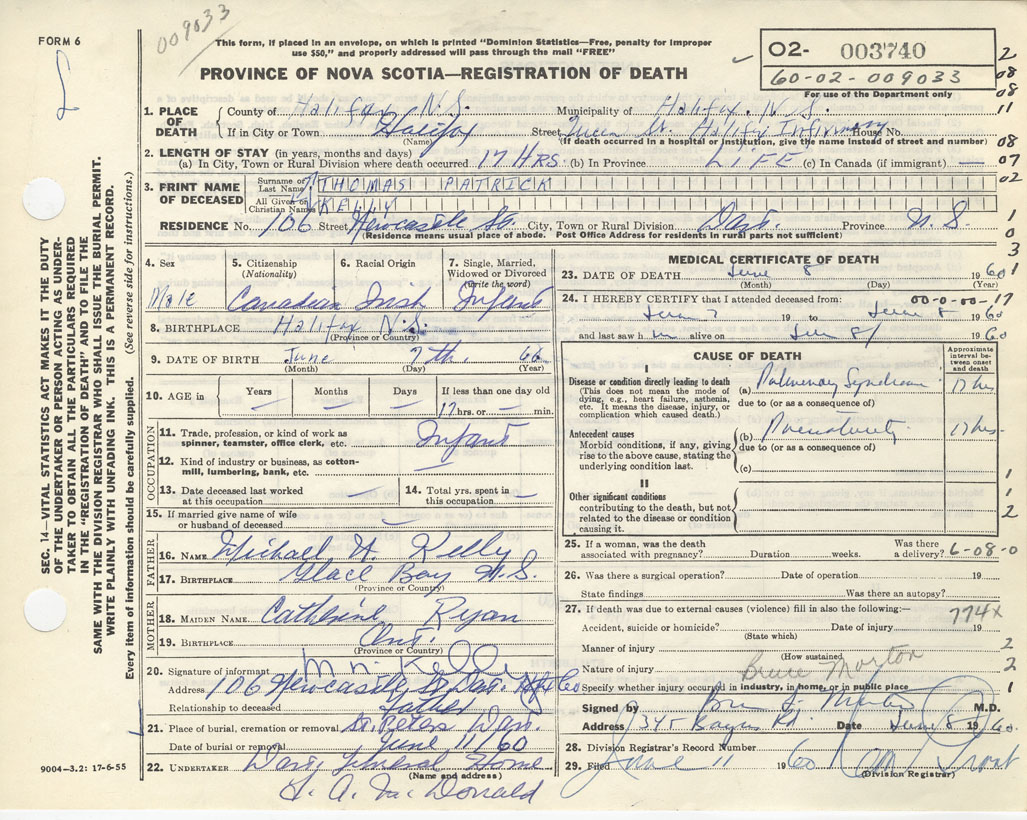 FORM 6
009033
This form, if placed in an envelope, on which is printed "Dominion Statistics—Free, penalty for improper
use $50," and properly addressed will pass through the mail "FREE"
PROVINCE OF NOVA SCOTIA—REGISTRATION OF DEATH
O2- 003740
60-02-009033
For use of the Department only
2
08
08
11
08
07
02
1
0
3
1
1. PLACE OF DEATH
County of Halifax N.S. Municipality of Halifax, N.S.
If in City or Town Halifax Street Queen St. Halifax Infirmary House No.
(Name) (If death occurred in a hospital or institution, give the name instead of street and number)
2. LENGTH OF STAY (in years, months and days)
(a) In City, Town or Rural Division where death occurred 17 HRS. (b) In Province LIFE (c) In Canada (if immigrant) —
3. PRINT NAME OF DECEASED
Surname or Last Name THOMAS PATRICK
All Given or Christian Names KELLY
RESIDENCE No. 106 Street Newcastle St. City, Town or Rural Division Dart. Province N.S.
(Residence means usual place of abode. Post Office Address for residents in rural parts not sufficient)
SEC. 14—VITAL STATISTICS ACT MAKES IT THE DUTY
OF THE UNDERTAKER OR PERSON ACTING AS UNDER-
TAKER TO OBTAIN ALL THE PARTICULARS REQUIRED
IN THE "REGISTRATION OF DEATH" AND TO FILE THE
SAME WITH THE DIVISION REGISTRAR WHO SHALL ISSUE THE BURIAL PERMIT.
WRITE PLAINLY WITH UNFADING INK. THIS IS A PERMANENT RECORD.
Every item of information should be carefully supplied. (See reverse side for instructions.)
4. Sex 5. Citizenship 6. Racial Origin 7. Single, Married,
(Nationality) Widowed or Divorced
(write the word)
Male Canadian Irish Infant
8. BIRTHPLACE Halifax N.S.
(Province or Country)
9. DATE OF BIRTH June 7th. 60
(Month) (Day) (Year)
10. AGE in Years Months Days If less than one day old
— — — 17 hrs. or — min.
OCCUPATION
11. Trade, profession, or kind of work as
spinner, teamster, office clerk, etc. Infant
12. Kind of industry or business, as cotton-
mill, lumbering, bank, etc. —
13. Date deceased last worked
at this occupation —
14. Total yrs. spent in
this occupation —
15. If married give name of wife
or husband of deceased —
FATHER
16. NAME Michael H. Kelly
17. BIRTHPLACE Glace Bay N.S.
(Province or Country)
MOTHER
18. MAIDEN NAME Catherine Ryan
19. BIRTHPLACE Ont.
(Province or Country)
20. Signature of informant M H Kelly
Address 106 Newcastle St Dart.
Relationship to deceased Father
21. Place of burial, cremation or removal St. Peters Dart.
Date of burial or removal June 11/60
22. UNDERTAKER Dart. Funeral Home
(Name and address)
9004-3.2: 17-6-55
MEDICAL CERTIFICATE OF DEATH
23. DATE OF DEATH June 8 1960
(Month) (Day) (Year)
24. I HEREBY CERTIFY that I attended deceased from: 00-0-00-17
June 7 19 to June 8 1960
and last saw h m alive on June 8/ 1960
CAUSE OF DEATH
Approximate
interval be-
tween onset
and death
I
Disease or condition directly leading to death
(This does not mean the mode of
dying, e.g., heart failure, asthenia,
etc. It means the disease, injury, or
complication which caused death.)
(a) Pulmonary Syndrome 17 hrs
due to (or as a consequence of)
Antecedent causes
Morbid conditions, if any, giving
rise to the above cause, stating the
underlying condition last.
(b) Prematurity 17 hrs.
due to (or as a consequence of)
(c)
II
Other significant conditions
contributing to the death, but not
related to the disease or condition
causing it.
1
1
2
25. If a woman, was the death
associated with pregnancy? Duration weeks. Was there
a delivery? 6-08-0
26. Was there a surgical operation? Date of operation 19
State findings Was there an autopsy?
27. If death was due to external causes (violence) fill in also the following:—
774x
Accident, suicide or homicide? Date of injury 19
(State which)
Manner of injury 2
(How sustained)
Bruce Morton
Nature of injury 2
Specify whether injury occurred in industry, in home, or in public place 1
Signed by M.D.
Address Rd. Date June 8 1960.
28. Division Registrar's Record Number
29. Filed June 11 1960
(Division Registrar)